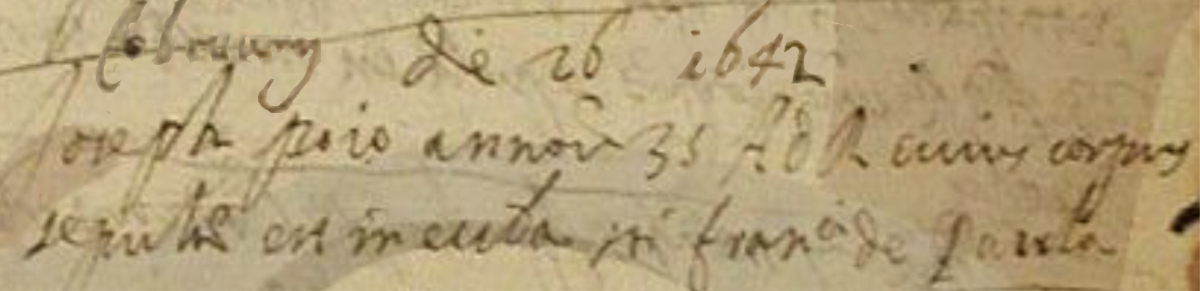 februarij die 26 1642
Joseph poio annorũ 35 cuius corpus
sepultũ est in eccłia sti franci de Paula